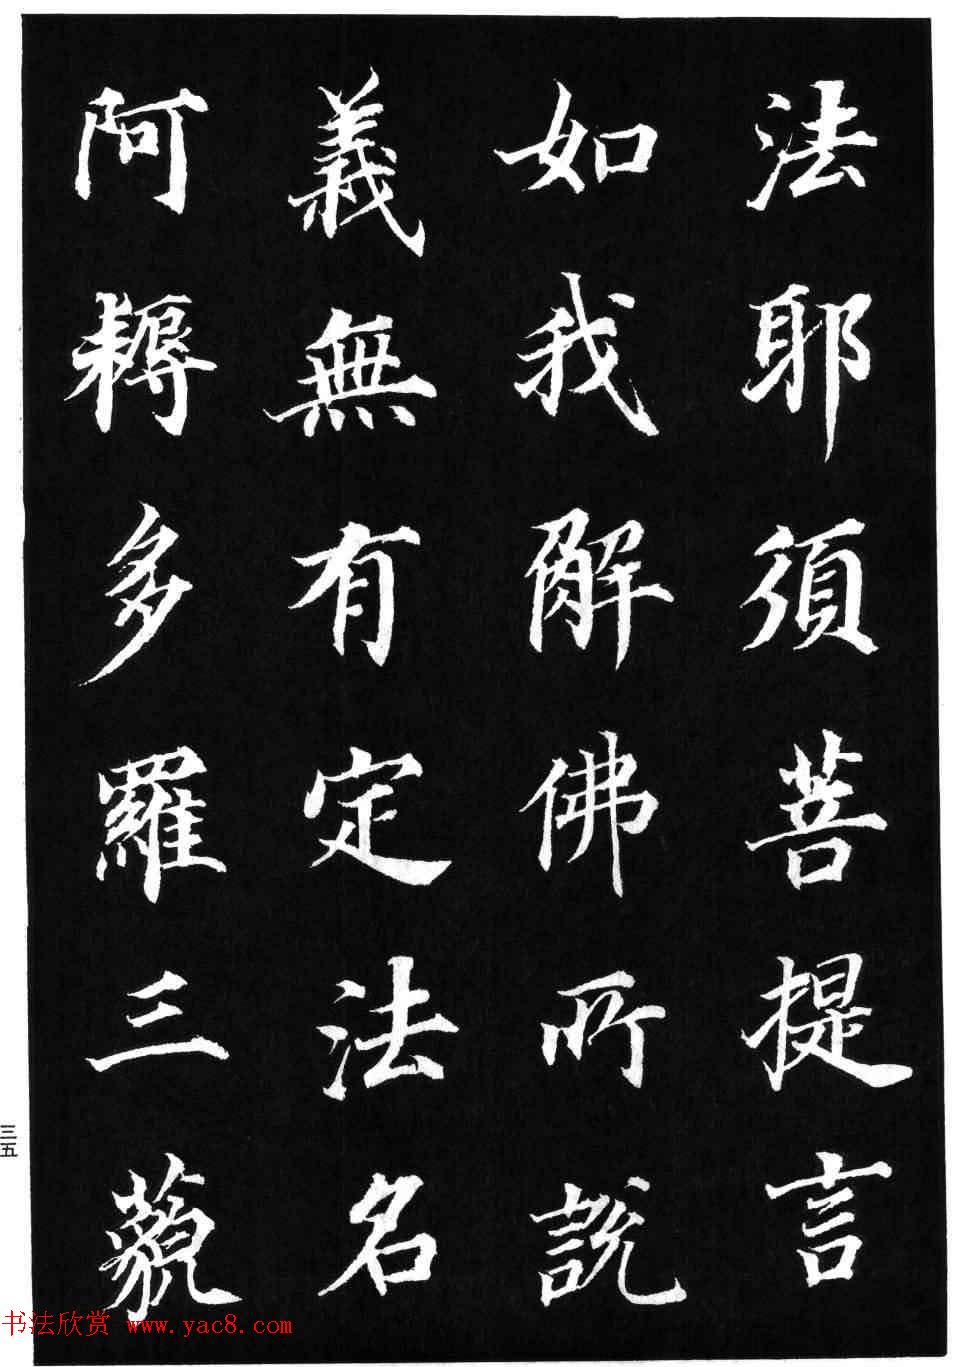 法耶須菩提言
如我解佛所說
義無有定法名
阿耨多羅三藐
三五
书法欣赏 www.yac8.com